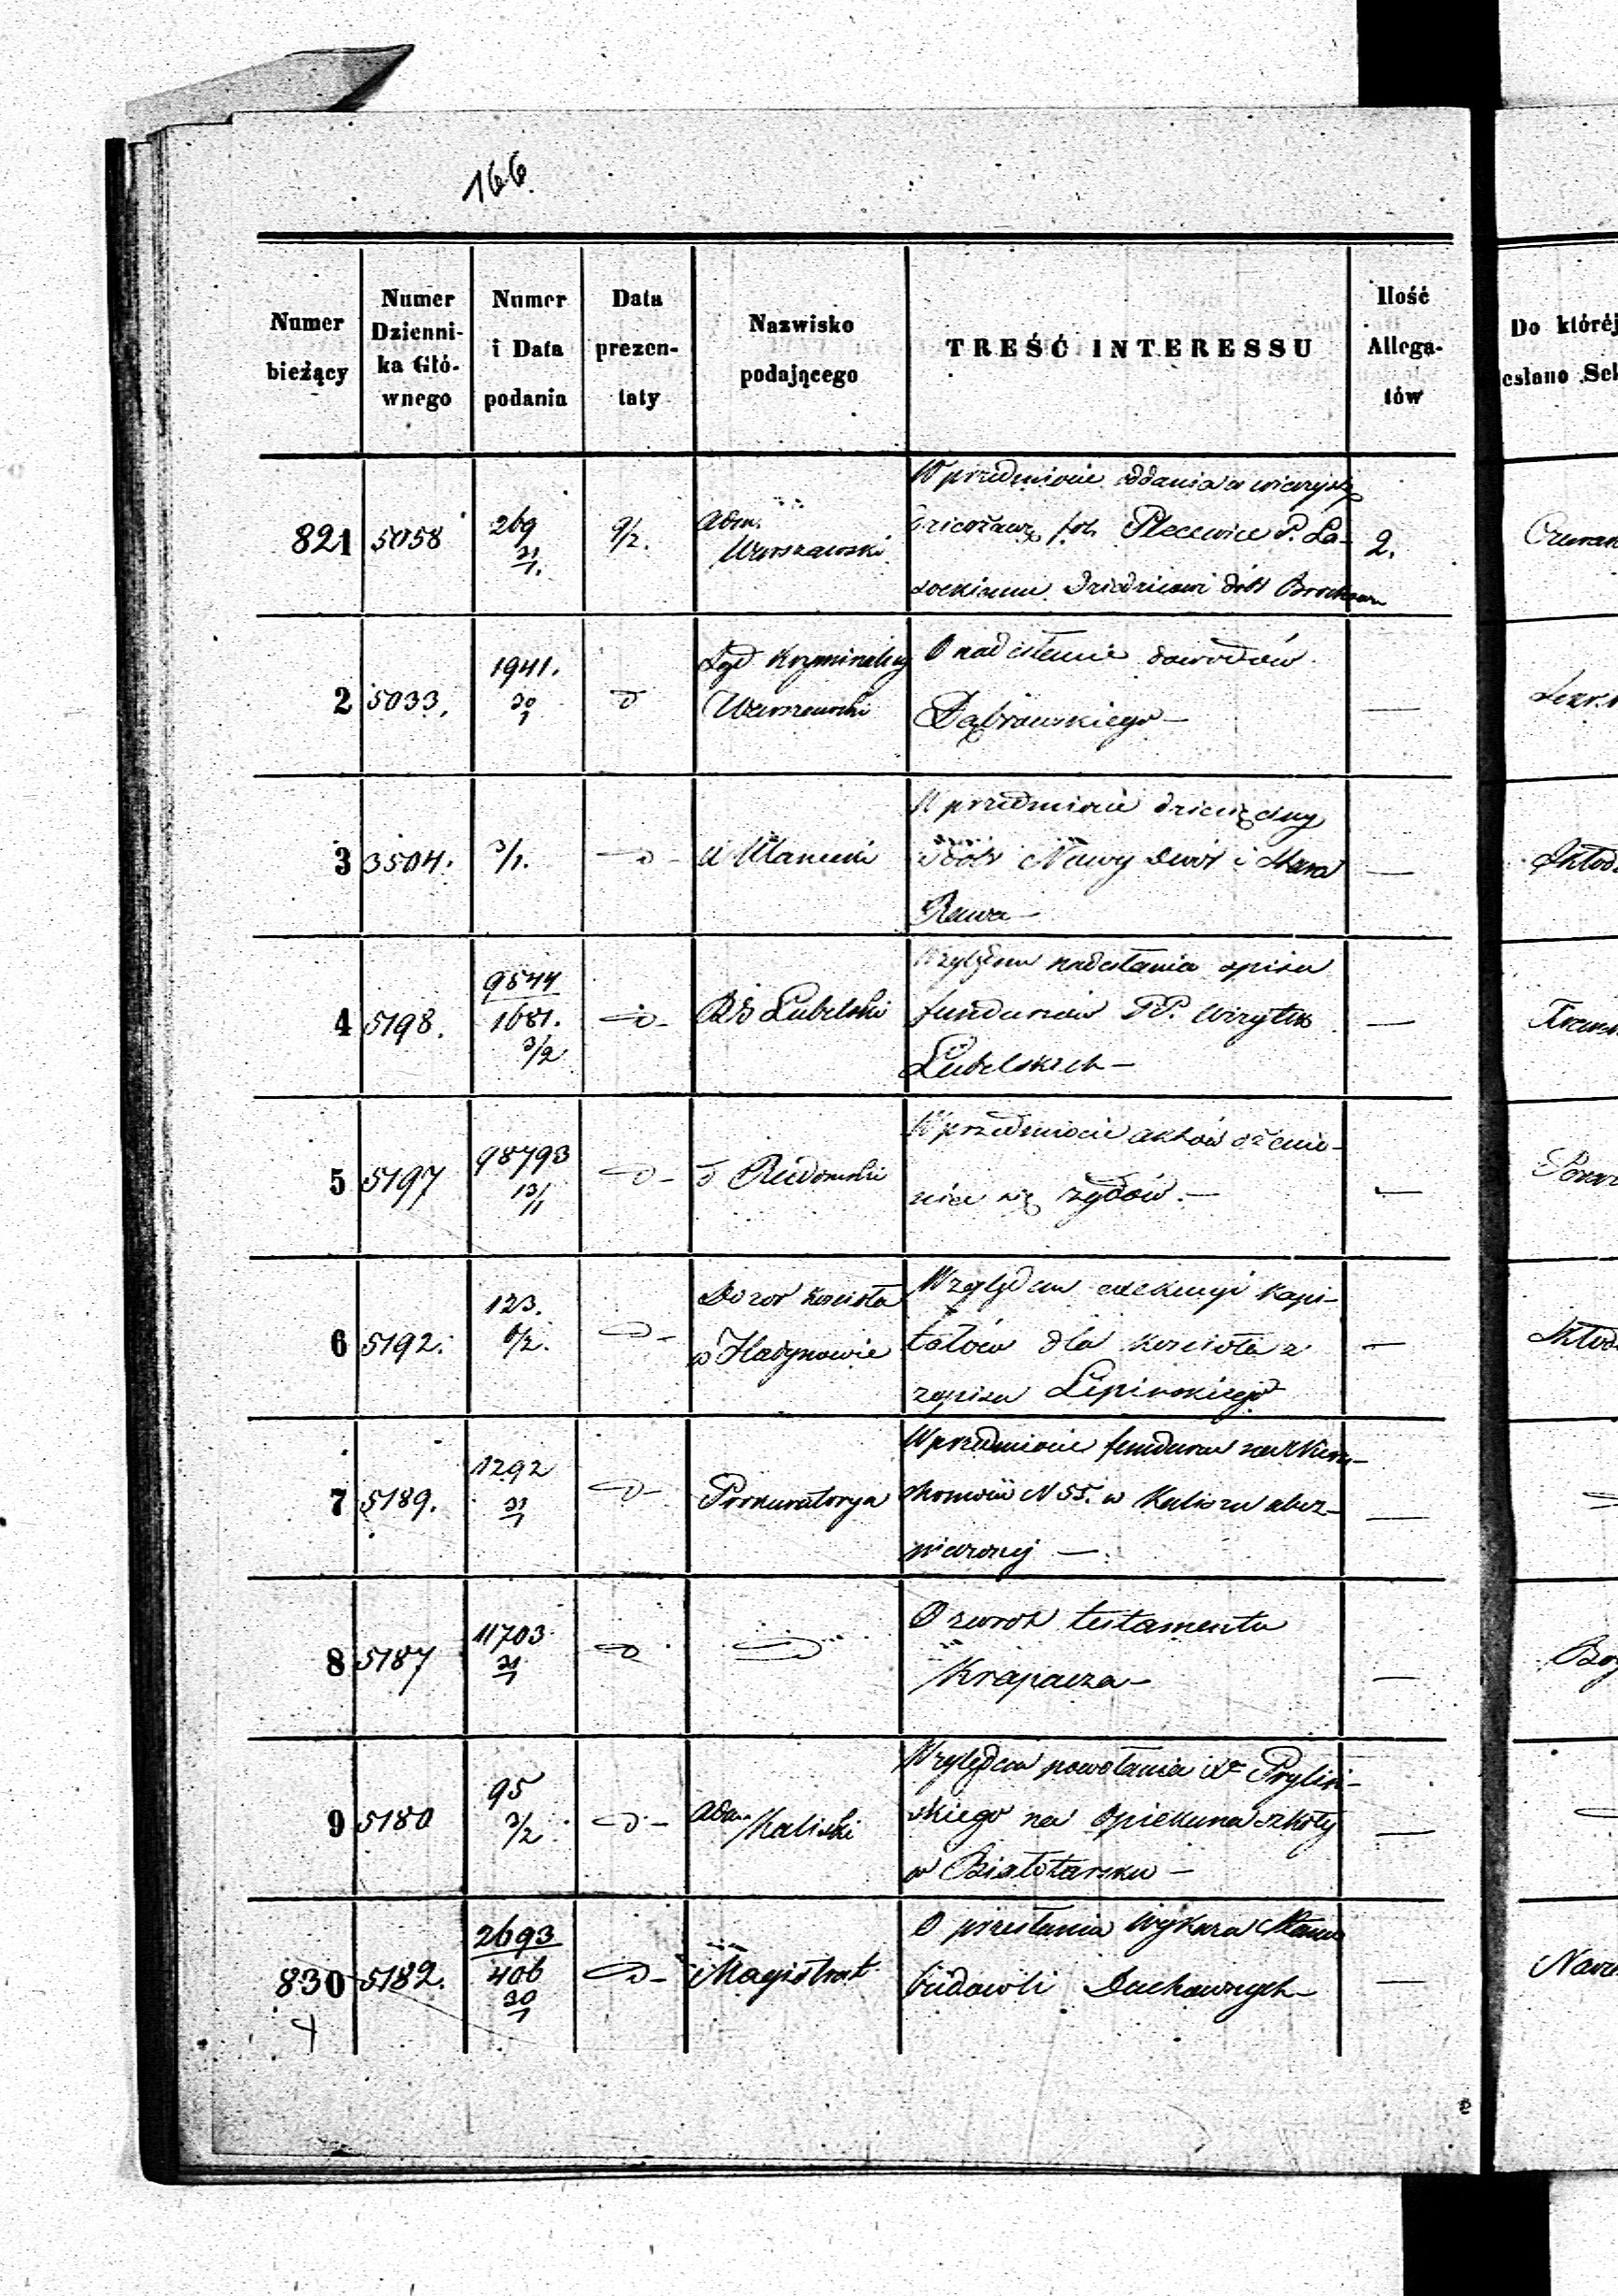 166.
Numer bieżący | Numer Dzienni-ka Głó-wnego | Numer i Data podania | Data prezen-taty | Nazwisko podającego | TREŚĆ INTERESSU | Ilość Allega-tów | Do któréj
821 | 5058 | 269 31/1. | 9/2. | Adm. Warszawski | W przedmiocie oddania w wieczystą
dzierżawę fol. Plecewice P. La-
sockiemu Dziedzicowi dóbr Brochow | 2.
2 | 5033. | 1941. 30/1 | d | Sąd Kryminalny Warszawski | O nadesłanie dowodów
Dąbrowskiego — | —
3 | 3504. | 3/1. | d | Ułaniecki | W przedmiocie dziesięciny
z dóbr Nowy Dwór i Stara
Rawa — | —
4 | 5198. | 9544 1681. 3/2 | d | Rz Lubelski | Względem nadesłania spisu
funduszów PP. Wizytek
Lubelskich — | —
5 | 5197 | 98793 13/11 | d | d Radomski | W przedmiocie aktów ożenie-
nia się żydów. — | —
6 | 5192. | 123. 6/2. | d | Dozor kościoła w Hadynowie | Względem exekucyi kapi-
tałów dla kościoła z
zapisu Lipinskiego | —
7 | 5189. | 1292 31/1 | d | Prokuratorya | W przedmiocie funduszu na Nieru-
chomości N 55. w Kaliszu ubez-
pieczonej — | —
8 | 5187 | 11703 31/1 | d | d | O zwrot testamentu
Krapacza — | —
9 | 5180 | 95 3/2 | d | Adm. Kaliski | Względem powołania Prylin-
skiego na opiekuna szkoły
w Białotarsku — | —
830 | 5182. | 2693 406 30/1 | d | Magistrat | O przesłania Wykazu Stanu
budowli Duchownych — | —